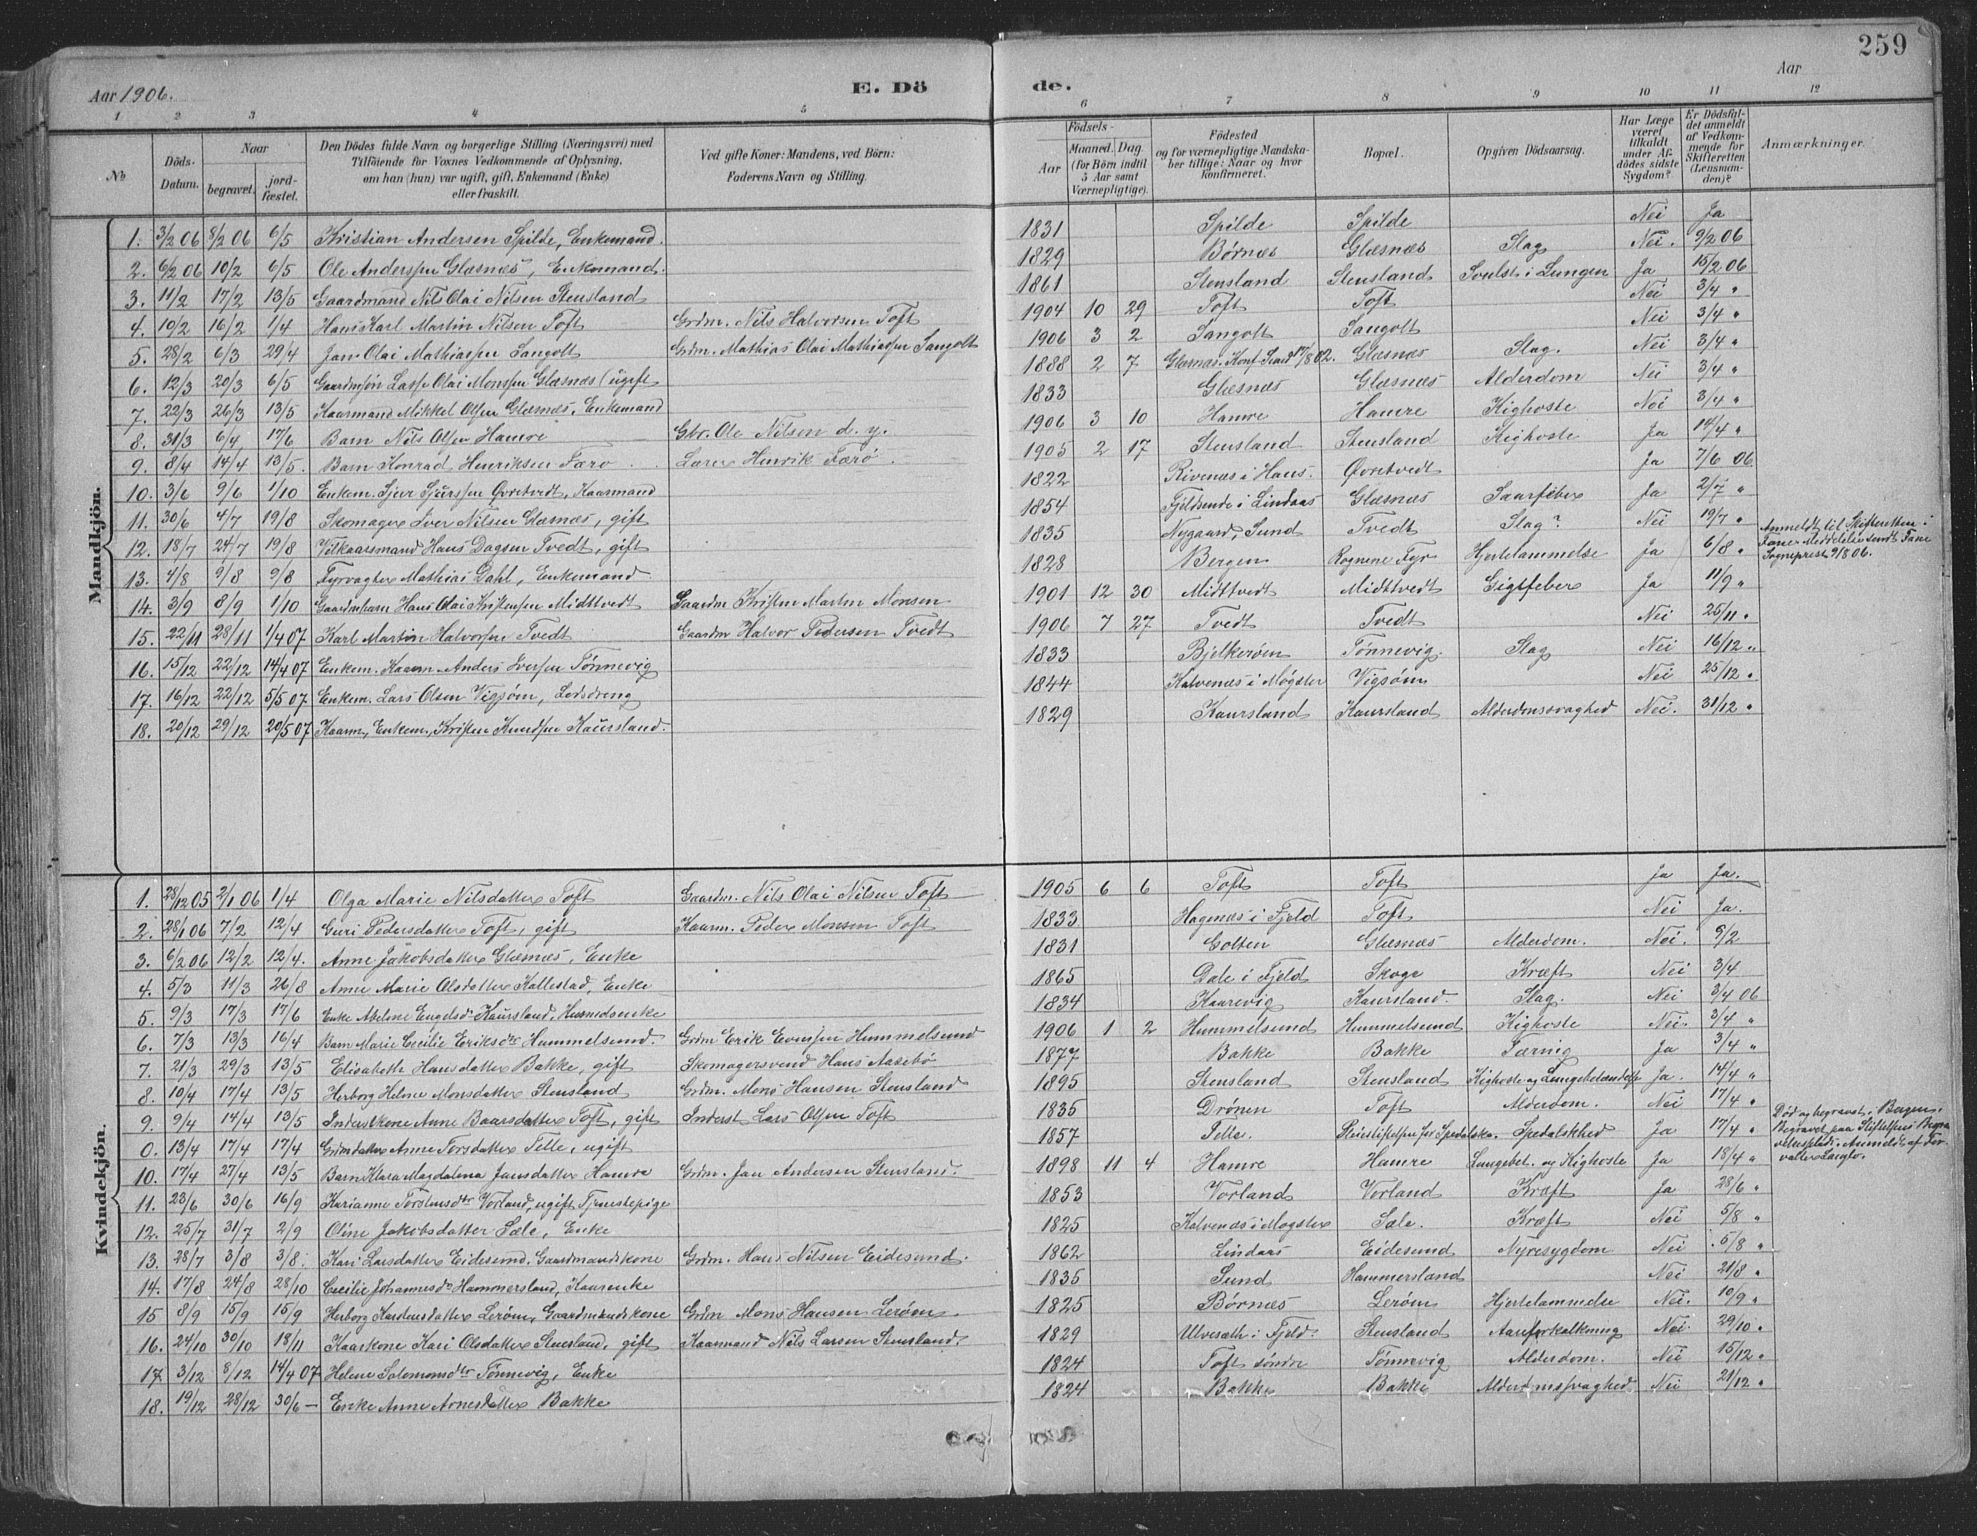 259
Aar 1906.
E. Dö
de.
Aar
1 2 3 4 5 6 7 8 9 10 11 12
No
Döds-Datum.
Naar
begravet.
jordfæstet.
Den Dödes fulde Navn og borgerlige Stilling (Næringsvei) med Tilföiende for Voxnes Vedkommende af Oplysning, om han (hun) var ugift, gift, Enkemand (Enke) eller fraskilt.
Ved gifte Koner: Mandens, ved Börn: Faderens Navn og Stilling.
Födsels-
Aar
Maaned. Dag. (for Börn indtil 5 Aar samt Værnepligtige).
Födested og for værnepligtige Mandskaber tillige: Naar og hvor Konfirmeret.
Bopæl.
Opgiven Dödsaarsag.
Har Læge været tilkaldt under Afdödes sidste Sygdom?
Er Dödsfaldet anmeldt af Vedkommende for Skifteretten (Lensmanden)?
Anmærkninger.
Mandkjön.
1. 3/2 06 8/2 06 6/5 Kristian Andersen Spilde, Enkemand. 1831 Spilde Spilde Nei Ja
2. 6/2 06 10/2 6/5 Ole Anderssen Glæsnæs, Enkemand. 1829 Børnæs Glæsnæs Slag Nei. 9/2 06
3. 11/2 17/2 13/5 Gaardmand Nils Olai Nilsen Stensland 1861 Stensland Stensland Svulst i Lungen Ja 15/2 06
4. 10/2 16/2 1/4 Hans Karl Martin Nilsen Toft Grdm. Nils Halvorsen Toft 1904 10 29 Toft Toft Nei 3/4 "
5. 28/2 6/3 29/4 Jan Olai Mathiassen Sangolt Grdm. Mathias Olai Mathiassen Sangolt 1906 3 2 Sangolt Sangolt Nei 3/4 "
6. 12/3 20/3 6/5 Gaardmsøn Lasse Olai Monssen Glæsnæs (ugift 1888 2 7 Glæsnæs. Konf. Sund 17/8 02. Glæsnæs Slag. Nei 3/4 "
7. 22/3 26/3 13/5 Kaarmand Mikkel Olssen Glæsnæs, Enkemand 1833 Glæsnæs Glæsnæs Alderdom Nei 3/4 "
8. 31/3 6/4 17/6 Barn Nils Olsen Hamre Gbr. Ole Nilsen d. y. 1906 3 10 Hamre Hamre Kighoste Nei 3/4 "
9. 8/4 14/4 13/5. Barn Konrad Henriksen Færø. Lærer Henrik Færø. 1905 2 17 Stensland Stensland Kighoste Ja 19/4 "
10. 3/6 9/6 1/10 Enkem. Sjur Sjurssen Øvretvedt, Kaarmand 1822 Rivenæs i Haus. Øvretvedt Ja 7/6 06
11. 30/6 4/7 19/8 Skomager Iver Nilsen Glæsnæs, gift 1854 Fjeldsende i Lindaas Glæsnæs Saarfeber Ja 2/7 "
12. 18/7 24/7 19/8 Vilkaarsmand Hans Dagsen Tvedt, gift 1835 Nygaard, Sund Tvedt Slag? Nei 19/7 "
13. 4/8 9/8 9/8 Fyrvagter Mathias Dahl, Enkemand 1828 Bergen Rognene Fyr Hjertelammelse Ja 6/8 "
Anmeldt til Skifteretten i Fane. Meddelelse sendt Fane Sogneprest 9/8 06.
14. 3/9 8/9 1/10 Gaardmbarn Hans Olai Kristensen Midttvedt Gaardm Kristen Martin Monsen 1901 12 30 Midttvedt Midttvedt Gigtfeber Ja 11/9 "
15. 22/11 28/11 1/4 07 Karl Martin Halvorsen Tvedt Gaardm Halvor Pedersen Tvedt 1906 7 27 Tvedt Tvedt Nei 25/11 "
16. 15/12 22/12 14/4 07 Enkem. Kaarm. Anders Iversen Tønnevig 1833 Bjelkerøen Tønnevig. Slag Nei 16/12 "
17. 16/12 22/12 5/5 07 Enkem. Lars Olsen Vigsøm, Losdreng 1844 Kalvenæs i Møgster Vigsøm Nei 25/12 "
18. 20/12 29/12 20/5 07 Kaarm, Enkem, Kristen Knudsen Kaursland. 1829 Kaursland Kaursland Alderdomssvaghed Nei. 31/12 "
Kvindekjön.
1. 28/12 05 2/1 06 1/4 Olga Marie Nilsdatter Toft Gaardm. Nils Olai Nilsen Toft 1905 6 6 Toft Toft Ja Ja.
2. 28/1 06 7/2 12/4 Guri Pedersdatter Toft, gift Kaarm. Peder Monsen Toft 1833 Hagenæs i Fjeld Toft Nei Ja.
3. 6/2 06 12/2 12/4. Anne Jakobsdatter Glæsnæs, Enke 1831 Golten Glæsnæs Alderdom. Nei. 9/2
4. 5/3 11/3 26/8 Anne Marie Olsdatter Kallestad, Enke 1865 Dale i Fjeld Skoge Kræft Nei 3/4
5. 9/3 17/3 17/6 Enke Abelone Engelsd. Kaursland, Husmandsenke 1834 Kaarevig Kaursland. Slag. Nei 3/4 06
6. 7/3 13/3 16/4 Barn Marie Cecilie Eriksdtr Hummelsund. Grdm Erik Evensen Hummelsund 1906 1 2 Hummelsund Hummelsund Kighoste Nei. 3/4 "
7. 21/3 29/3 13/5 Elisabeth Hansdatter Bakke, gift Skomagersvend Hans Aasebø 1877 Bakke Bakke Tæring Ja 3/4 "
8. 10/4 17/4 13/5 Herborg Helene Monsdatter Stensland Grdm. Mons Hansen Stensland 1895 Stensland Stensland Kighoste og Lungebetændelse Ja. 14/4 "
9. 9/4 14/4 13/5 Inderstkone Anne Baarsdatter Toft, gift Inderst Lars Olsen Toft 1835 Drønen Toft Alderdom. Nei 17/4 "
0. 13/4 17/4 17/4 Grdmdatter Anne Torsdatter Telle, ugift 1857 Telle. Pleiestiftelsen for Spedalske. Spedalskhed Ja 17/4 "
Død og begravet i Bergen. Begravet paa Stiftelsens Begravelsesplads. Anmeldt af Forvalter Langlo.
10. 17/4 27/4 13/5 Barn Klara Magdalena Jansdatter Hamre Grdm. Jan Andersen Stensland. 1898 11 4 Hamre Hamre Lungebet. og Kighoste Ja 18/4 "
11. 23/6 30/6 16/9 Karianne Torstensdtr Vorland, ugift Tjenstepige 1853 Vorland Vorland Kræft Ja 28/6 "
12. 25/7 31/7 2/9 Oline Jakobsdatter Sæle, Enke 1825 Kalvenæs i Møgster Sæle. Kræft Nei 5/8 "
13. 28/7 3/8 3/8. Kari Larsdatter Eidesund, Gaardmandskone Grdm. Hans Nilsen Eidesund. 1862 Lindaas Eidesund Nyresygdom Nei 5/8 "
14. 17/8 24/8 28/10 Cecilie Johannesd. Hammersland, Kaarenke 1835 Sund Hammersland Nei 21/8 "
15 8/9 15/9 15/9 Herborg Karlensdatter Lerøm, Gaardmandskone Grdm Mons Hansen Lerøm 1825 Børnæs Lerøm Hjertelammelse Nei. 10/9 "
16. 24/10 30/10 18/11 Kaarkone Kari Olsdatter Stensland, gift Kaarmand Nils Larsen Stensland. 1829 Ulvesæth i Fjeld. Stensland Aareforkalkning Nei. 29/10 "
17 3/12 8/12 14/4 07 Helene Salomonsdtr Tønnevig, Enke 1824 Toft søndre Tønnevig Alderdom. Nei 15/12 "
18. 19/12 28/12 30/6 — Enke Anne Arnesdatter Bakke 1824 Bakke Bakke Alderdomssvaghed Nei 21/12 "